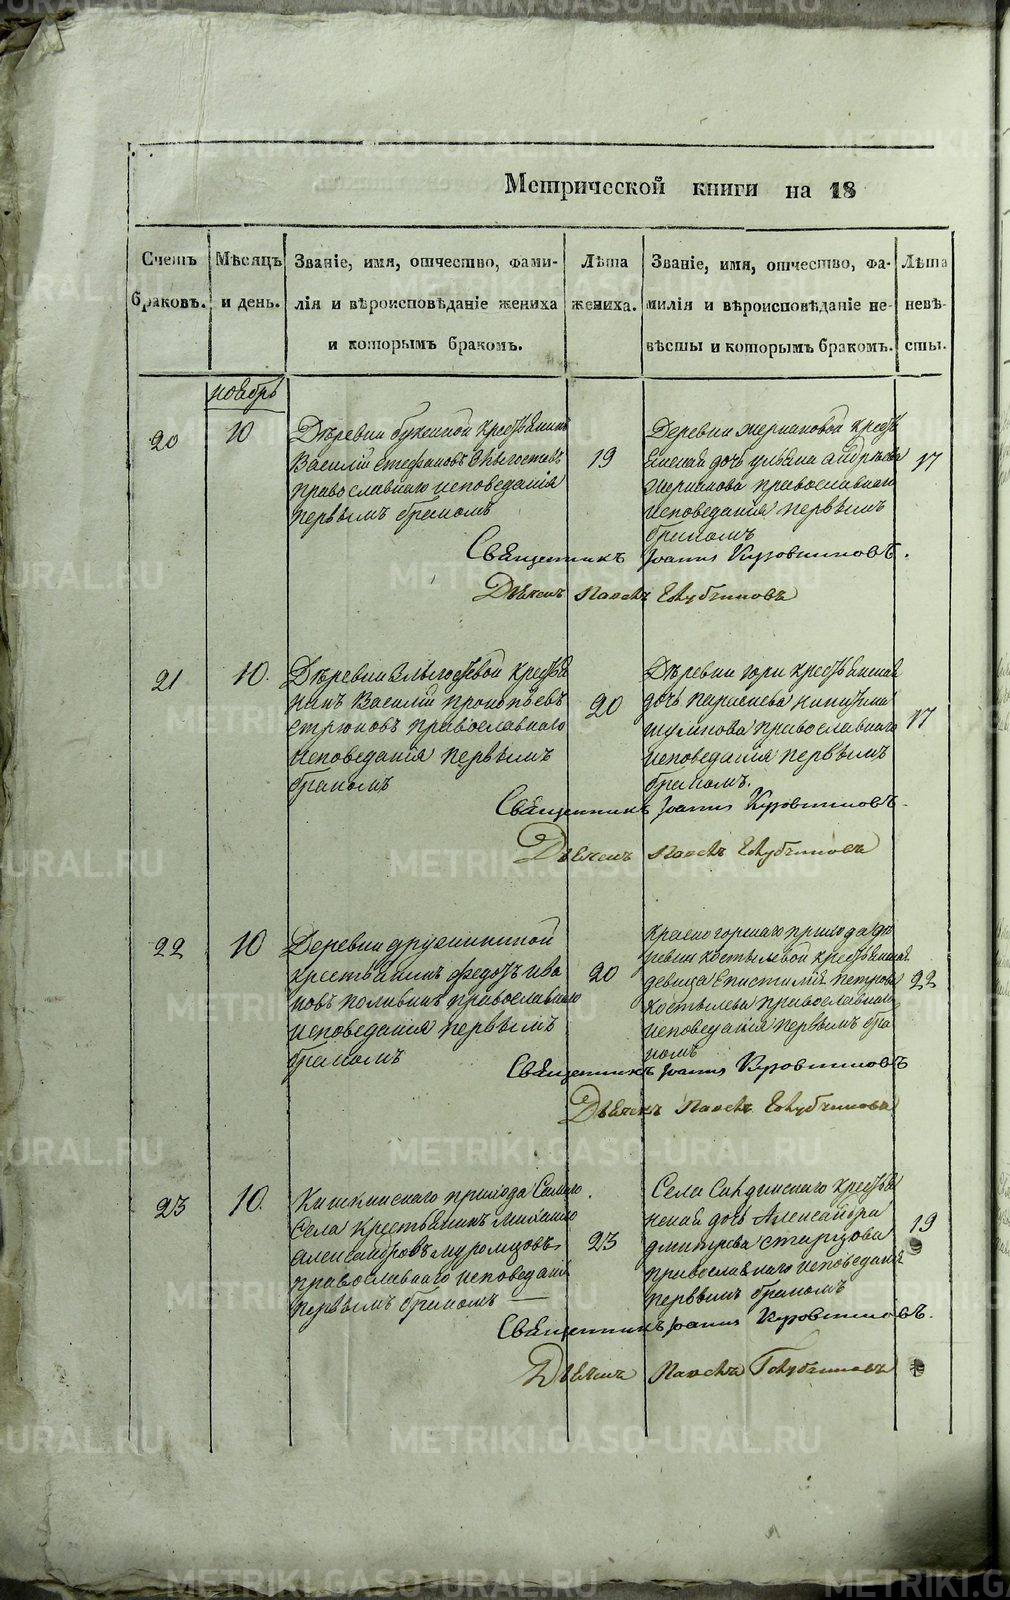 Метрической книги на 18
Счетъ браковъ.
Мѣсяцъ и день.
Званіе, имя, отчество, фами-
лія и вѣроисповѣданіе жениха
и которымъ бракомъ.
Лѣта жениха.
Званіе, имя, отчество, фа-
милія и вѣроисповѣданіе не-
вѣсты и которымъ бракомъ.
Лѣта невѣ-
сты.
ноябрь
20
10
Дѣревни крестьянинъ
Василій стефановъ
православнаго исповеданія
первымъ бракомъ
19
Деревни крестьян
енская дочь ульяна андрѣева
православнаго
исповедания первымъ
бракомъ
17
Священникъ Іоаннъ Кузовниковъ.
Дьячекъ Павелъ Голубчиковъ
21
10.
Дѣревни крестья
нинъ Василій прокопьевъ
стрюковъ православнаго
исповеданія первымъ
бракомъ
20
Дѣревни гори крестьянская
дочь никитина
православнаго
исповедания первымъ
бракомъ.
17
Священникъ Іоаннъ Кузовниковъ.
Дьячекъ Павелъ Голубчиковъ
22
10
Деревни
крестьянинъ федотъ ива
новъ православнаго
исповедания первымъ
бракомъ
20
красногорскаго прихода дѣ
ревни костылевой крестьянская
девица Епистимія петрова
костылева православнаго
исповедания первымъ бра
комъ
22
Священникъ Іоаннъ Кузовниковъ
Дьячекъ Павелъ Голубчиковъ
23
10.
прихода Самаго
Села крестьянинъ михаило
александровъ муромцовъ
православнаго исповеданія
первымъ бракомъ
23
Села крестья
нская дочь Александра
дмитрева старцова
православнаго исповедания
первымъ бракомъ
19
Священникъ Іоаннъ Кузовниковъ.
Дьячекъ Павелъ Голубчиковъ
METRIKI.GASO-URAL.RU